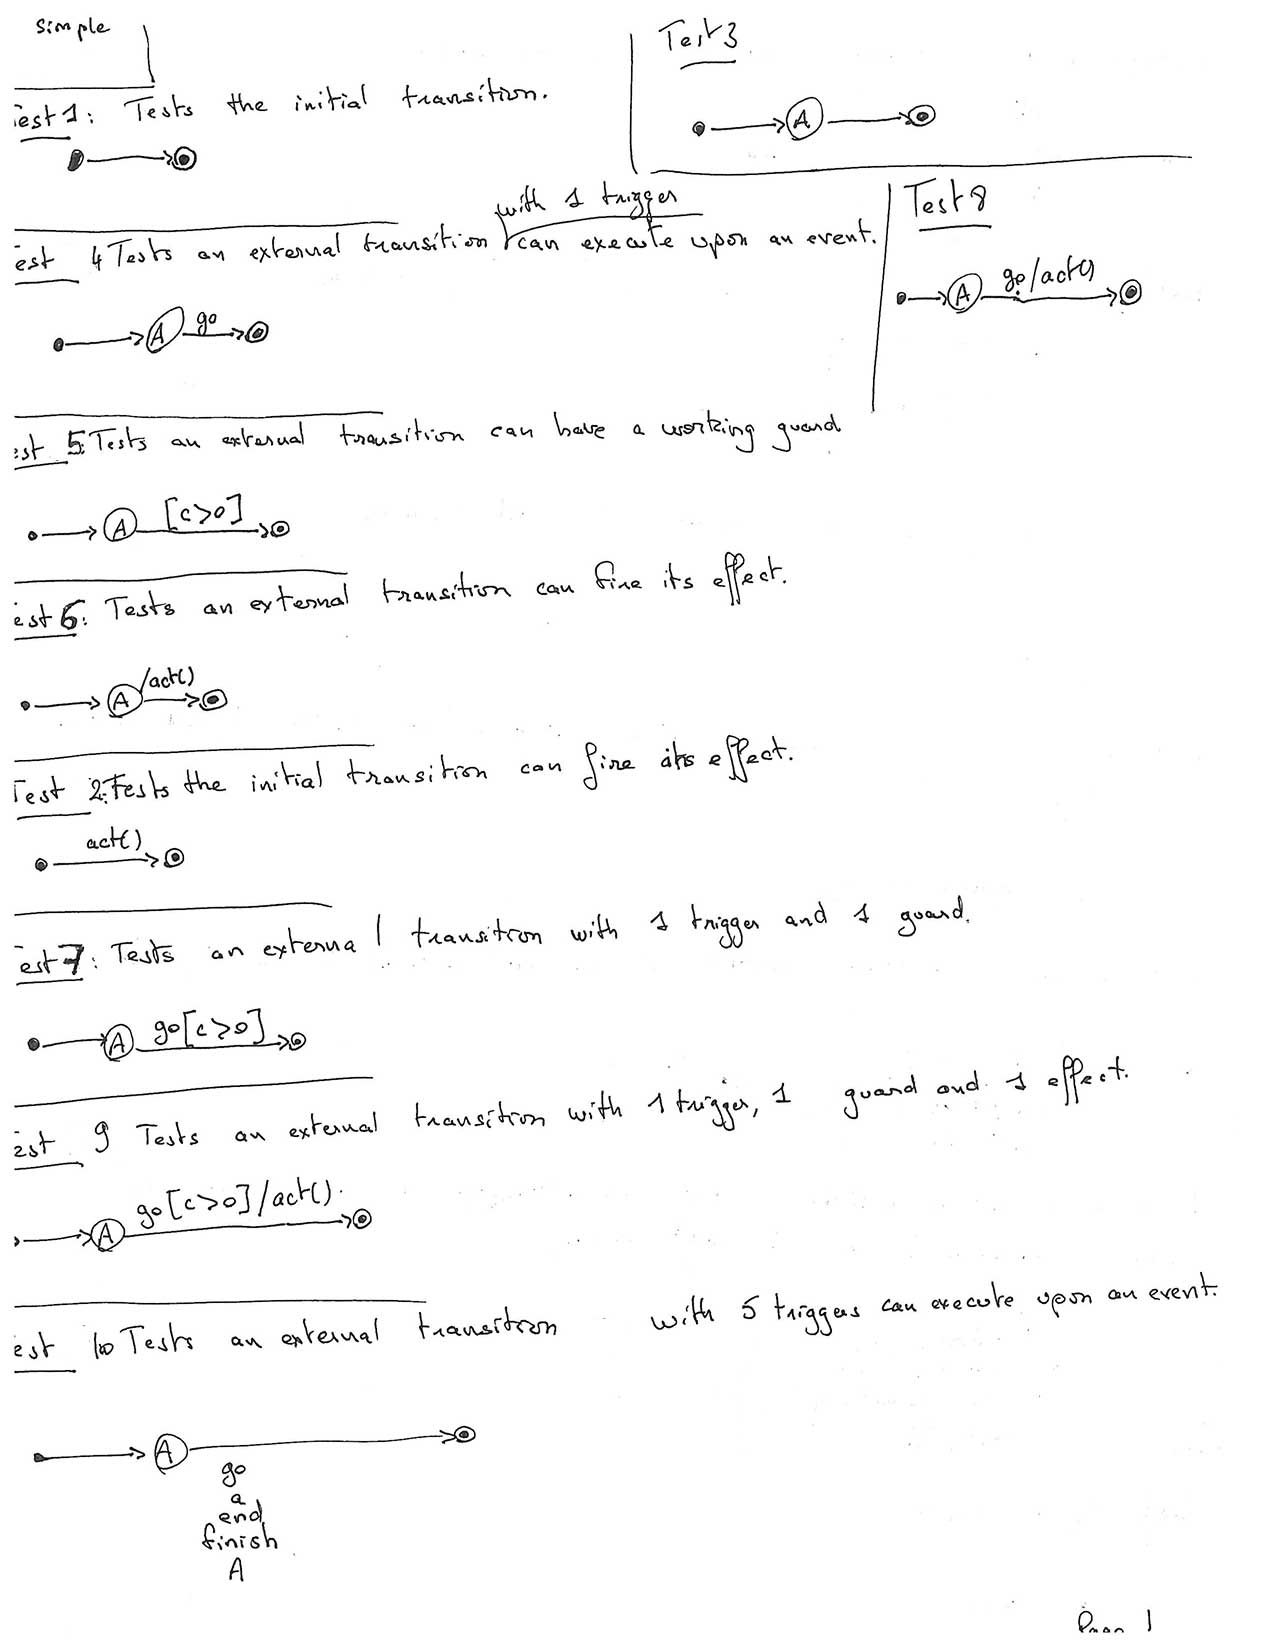 Simple
Test 3
A
est 1: Tests the initial transition.
with 1 trigger
est 4 Tests an external transition can execute upon an event.
A go
Test 8
A go/act()
est 5: Tests an external transition can have a working guard
A [c>0]
est 6: Tests an external transition can fire its effect.
A /act()
Test 2: Tests the initial transition can fire its effect.
act()
est 7: Tests an external transition with 1 trigger and 1 guard.
A go[c>0]
est 9 Tests an external transition with 1 trigger, 1 guard and 1 effect.
A go[c>0]/act()
est 10 Tests an external transition with 5 triggers can execute upon an event.
A
go
a
end
finish
A
Page 1